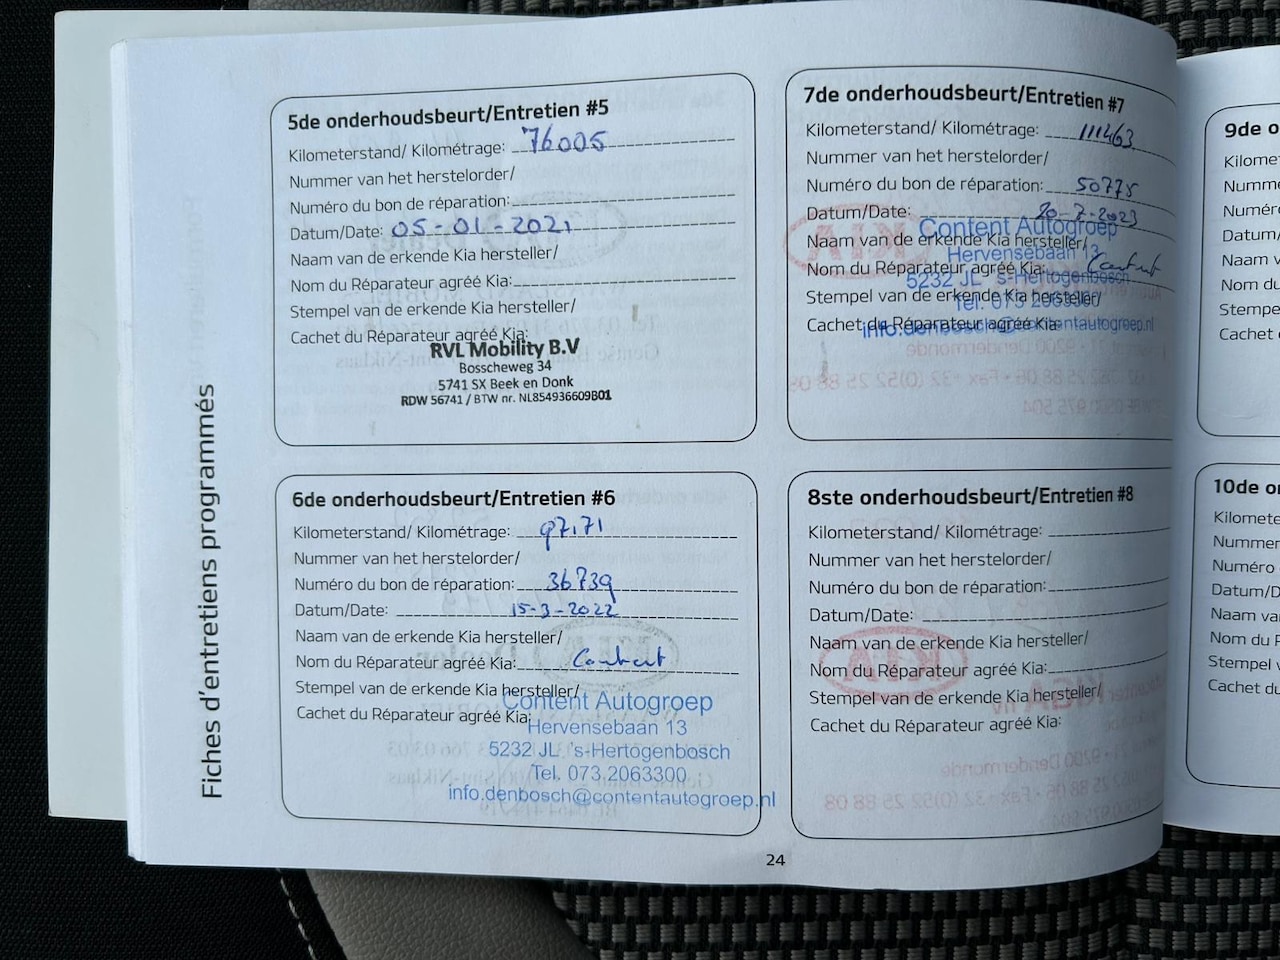 Fiches d'entretiens programmés
5de onderhoudsbeurt/Entretien #5
Kilometerstand/ Kilométrage: 76005
Nummer van het herstelorder/
Numéro du bon de réparation:
Datum/Date: 05-01-2021
Naam van de erkende Kia hersteller/
Nom du Réparateur agréé Kia:
Stempel van de erkende Kia hersteller/
Cachet du Réparateur agréé Kia:
RVL Mobility B.V
Bosscheweg 34
5741 SX Beek en Donk
RDW 56741 / BTW nr. NL854936609B01
6de onderhoudsbeurt/Entretien #6
Kilometerstand/ Kilométrage: 97.171
Nummer van het herstelorder/
Numéro du bon de réparation: 36739
Datum/Date: 15-3-2022
Naam van de erkende Kia hersteller/
Nom du Réparateur agréé Kia: Content
Stempel van de erkende Kia hersteller/
Cachet du Réparateur agréé Kia:
Content Autogroep
Hervensebaan 13
5232 JL 's-Hertogenbosch
Tel. 073.2063300
info.denbosch@contentautogroep.nl
7de onderhoudsbeurt/Entretien #7
Kilometerstand/ Kilométrage: 111463
Nummer van het herstelorder/
Numéro du bon de réparation: 50775
Datum/Date: 20-7-2023
Naam van de erkende Kia hersteller/
Nom du Réparateur agréé Kia: Content
Stempel van de erkende Kia hersteller/
Cachet du Réparateur agréé Kia:
Content Autogroep
Hervensebaan 13
5232 JL 's-Hertogenbosch
Tel. 073 2063300
info.denbosch@contentautogroep.nl
8ste onderhoudsbeurt/Entretien #8
Kilometerstand/ Kilométrage:
Nummer van het herstelorder/
Numéro du bon de réparation:
Datum/Date:
Naam van de erkende Kia hersteller/
Nom du Réparateur agréé Kia:
Stempel van de erkende Kia hersteller/
Cachet du Réparateur agréé Kia:
24
9de o
Kilome
Numme
Numéro
Datum/
Naam v
Nom du
Stempe
Cachet
10de o
Kilomete
Nummer
Numéro
Datum/D
Naam va
Nom du R
Stempel v
Cachet du